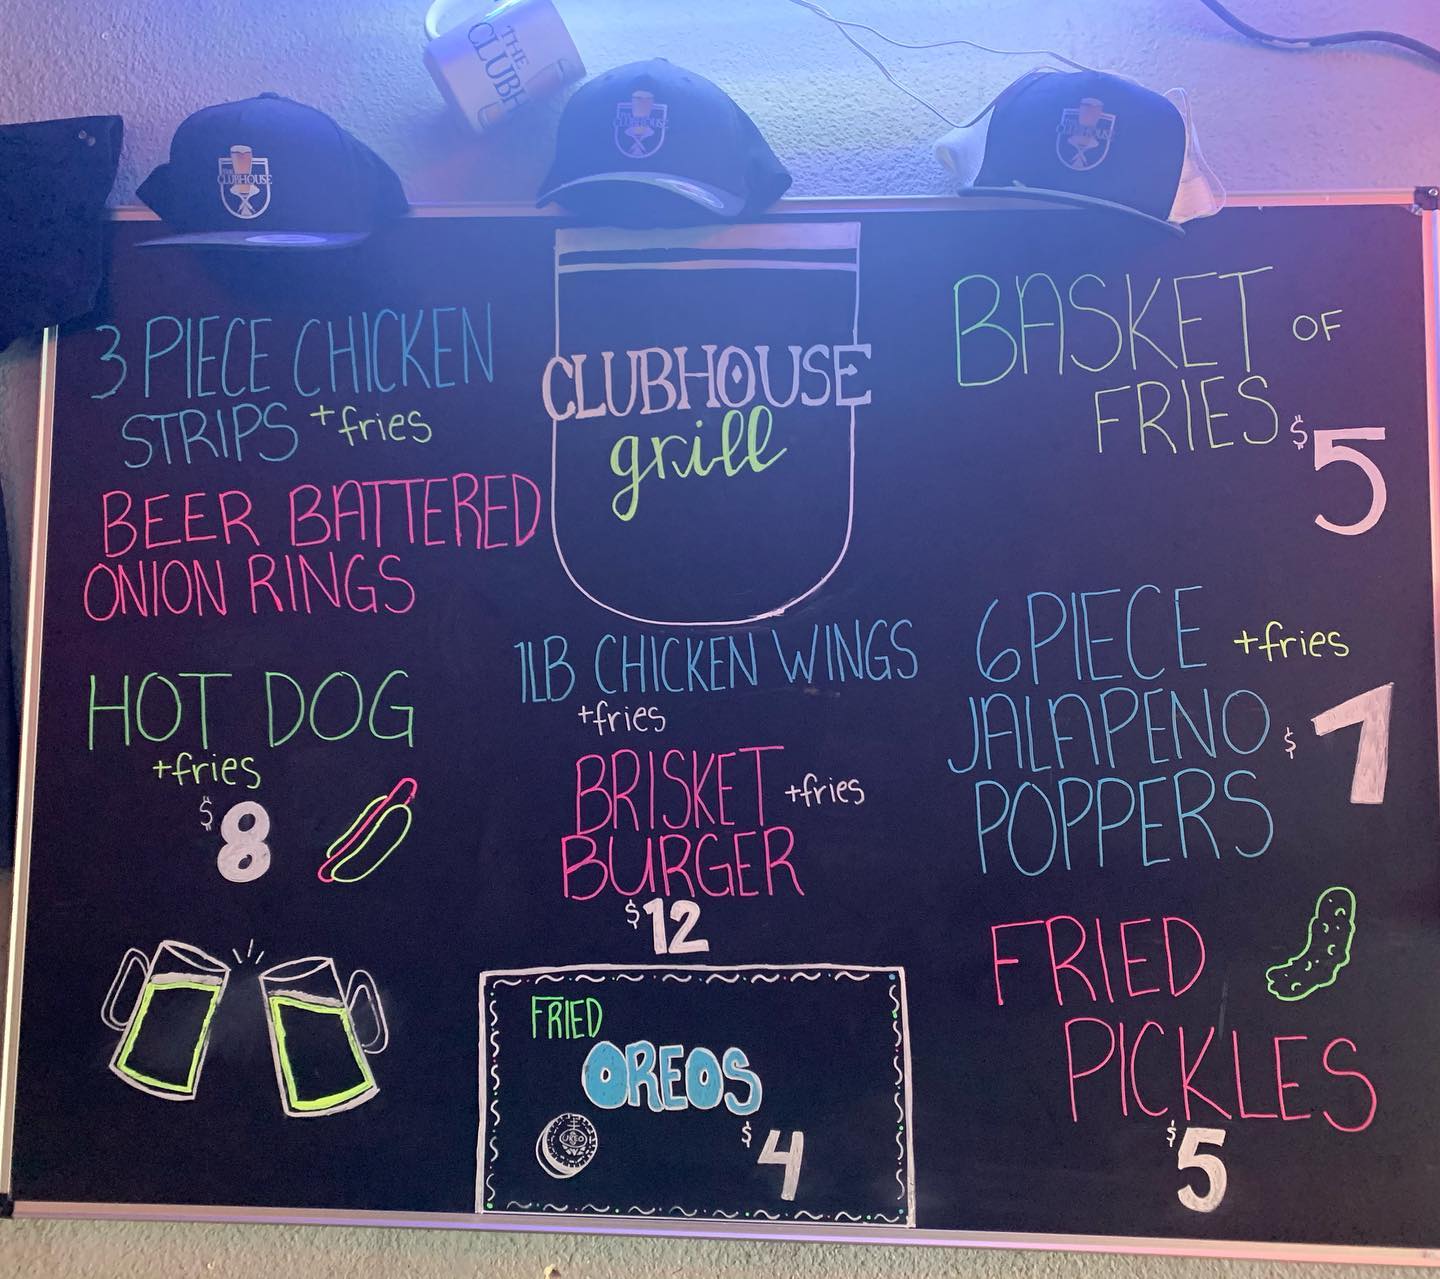 THE
CLUBH
CLUBHOUSE
CLUBHOUSE
CLUBHOUSE
3 PIECE CHICKEN
STRIPS +fries
BEER BATTERED
ONION RINGS
HOT DOG
+fries
$8
CLUBHOUSE
grill
1LB CHICKEN WINGS
+fries
BRISKET +fries
BURGER
$12
FRIED
OREOS
$4
BASKET OF
FRIES $5
6 PIECE +fries
JALAPENO $7
POPPERS
FRIED
PICKLES
$5